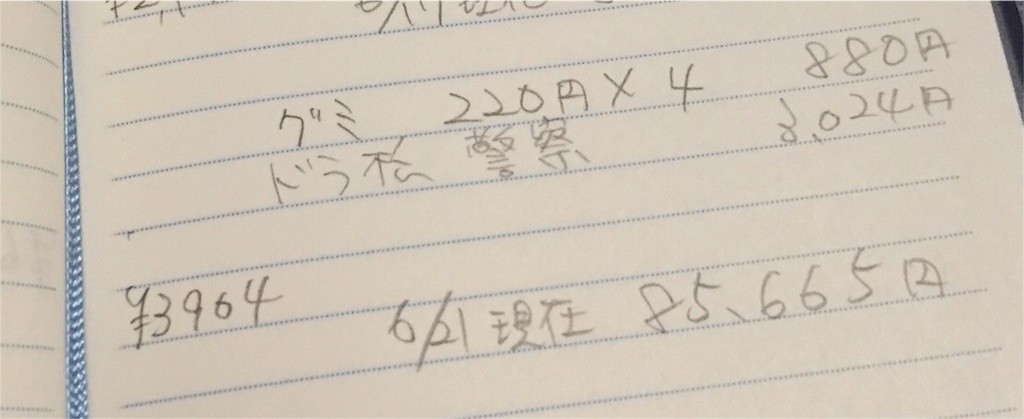 グミ 220円×4 880円
ドラ松 警察 3,024円
¥3964 6/21現在 85,665円